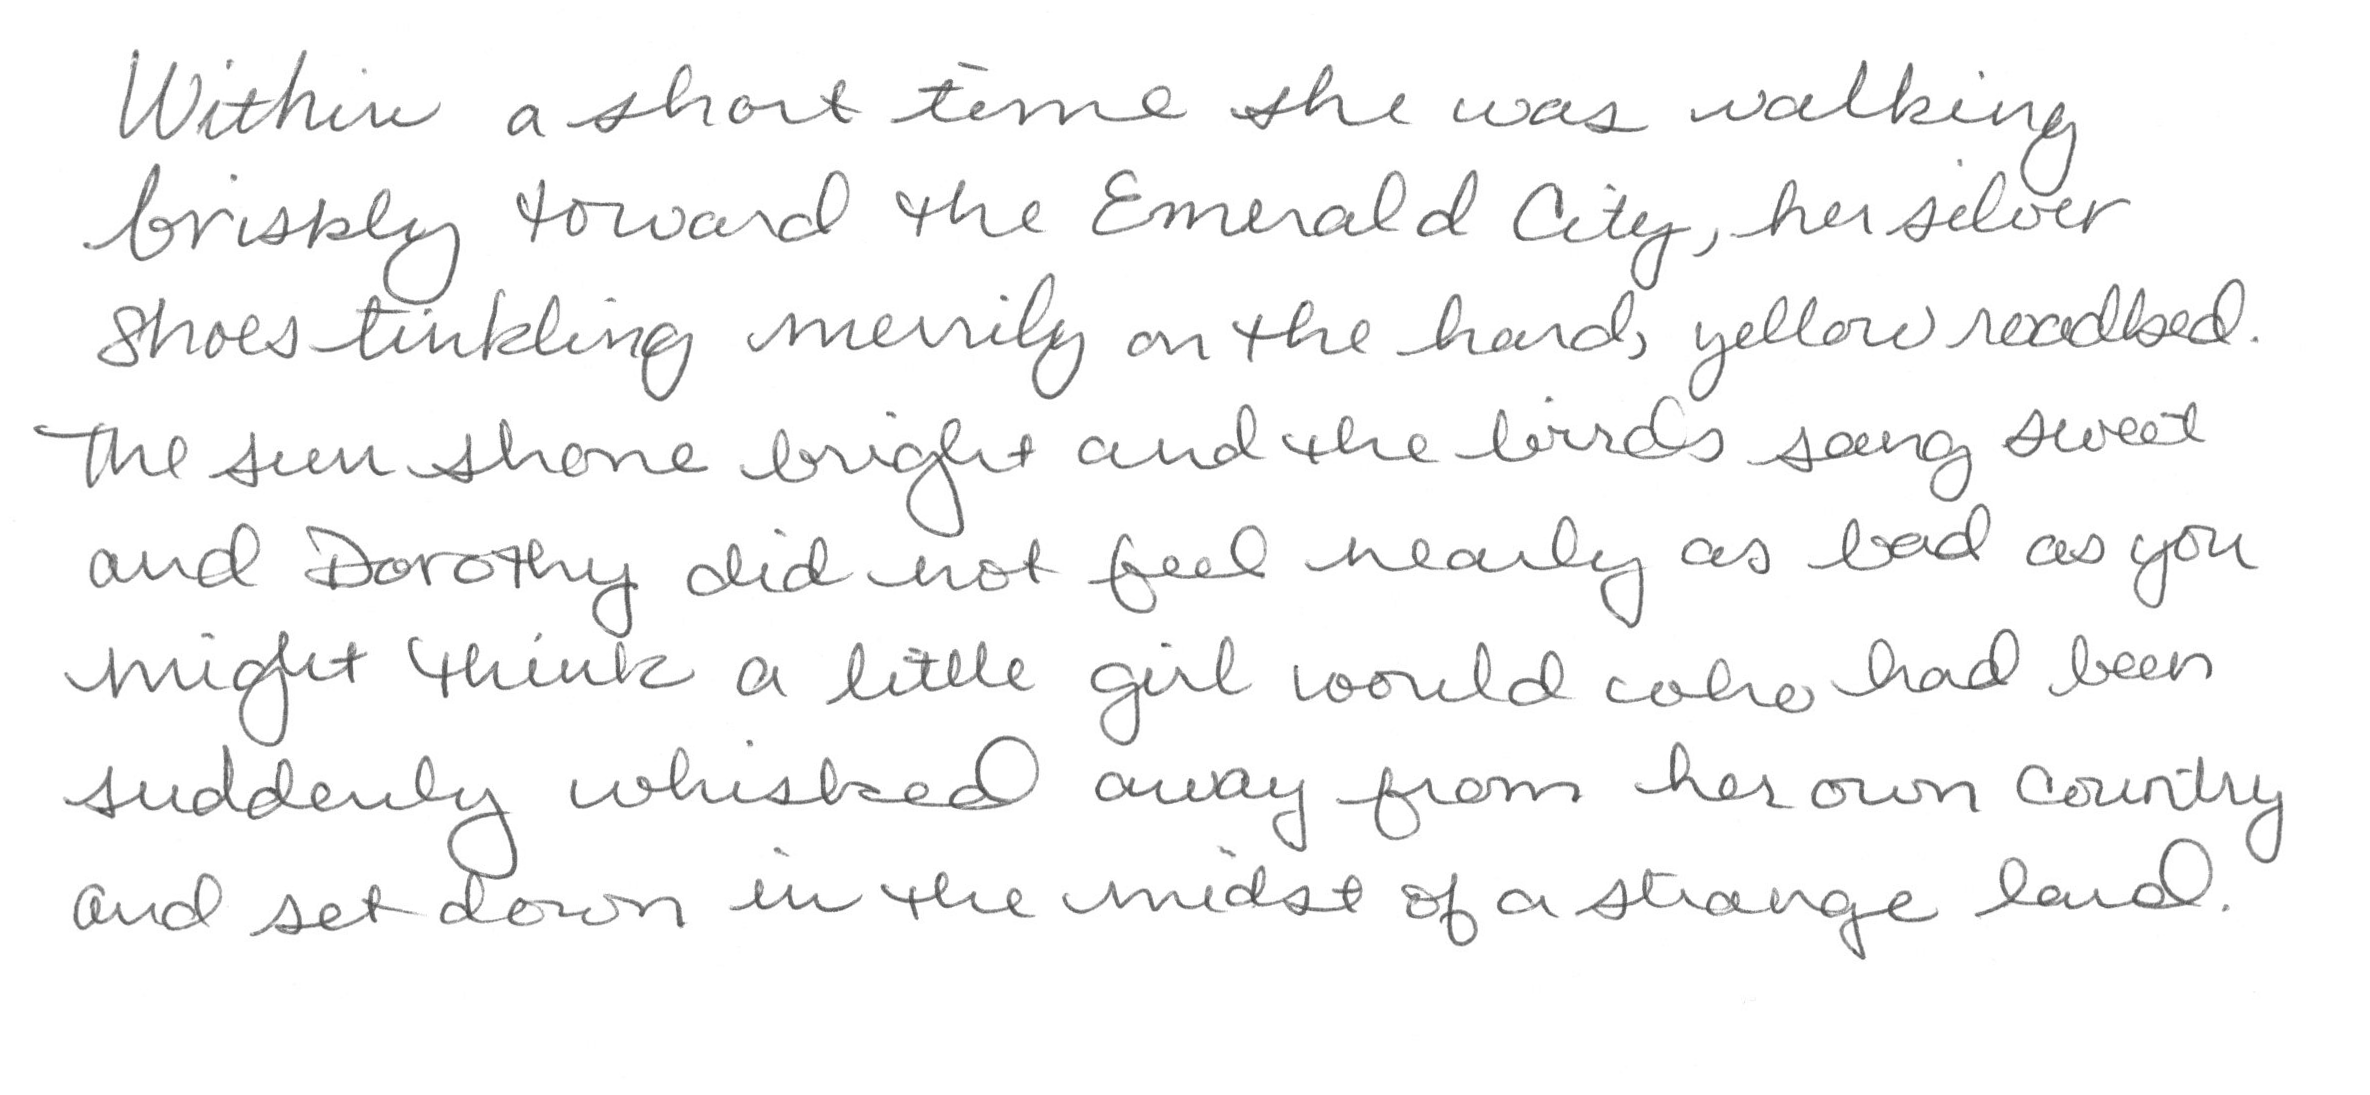 Within a short time she was walking
briskly toward the Emerald City, her silver
shoes tinkling merrily on the hard, yellow roadbed.
The sun shone bright and the birds sang sweet
and Dorothy did not feel nearly as bad as you
might think a little girl would who had been
suddenly whisked away from her own country
and set down in the midst of a strange land.